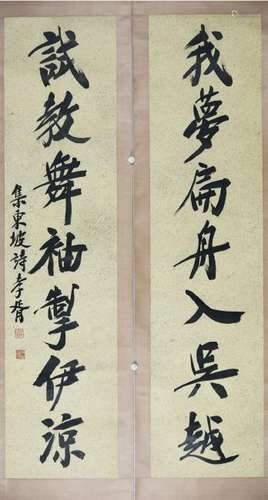 我夢扁舟入吳越
試教舞袖掣伊涼
集東坡詩孝胥